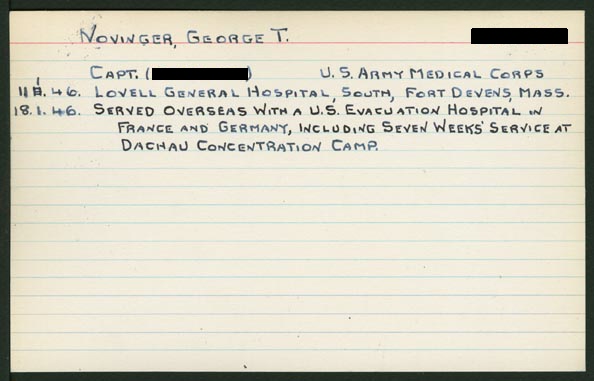 NOVINGER, GEORGE T.
CAPT. ( ) U.S. ARMY MEDICAL CORPS
11.1.46. LOVELL GENERAL HOSPITAL, SOUTH, FORT DEVENS, MASS.
18.1.46. SERVED OVERSEAS WITH A U.S. EVACUATION HOSPITAL IN
FRANCE AND GERMANY, INCLUDING SEVEN WEEKS' SERVICE AT
DACHAU CONCENTRATION CAMP.